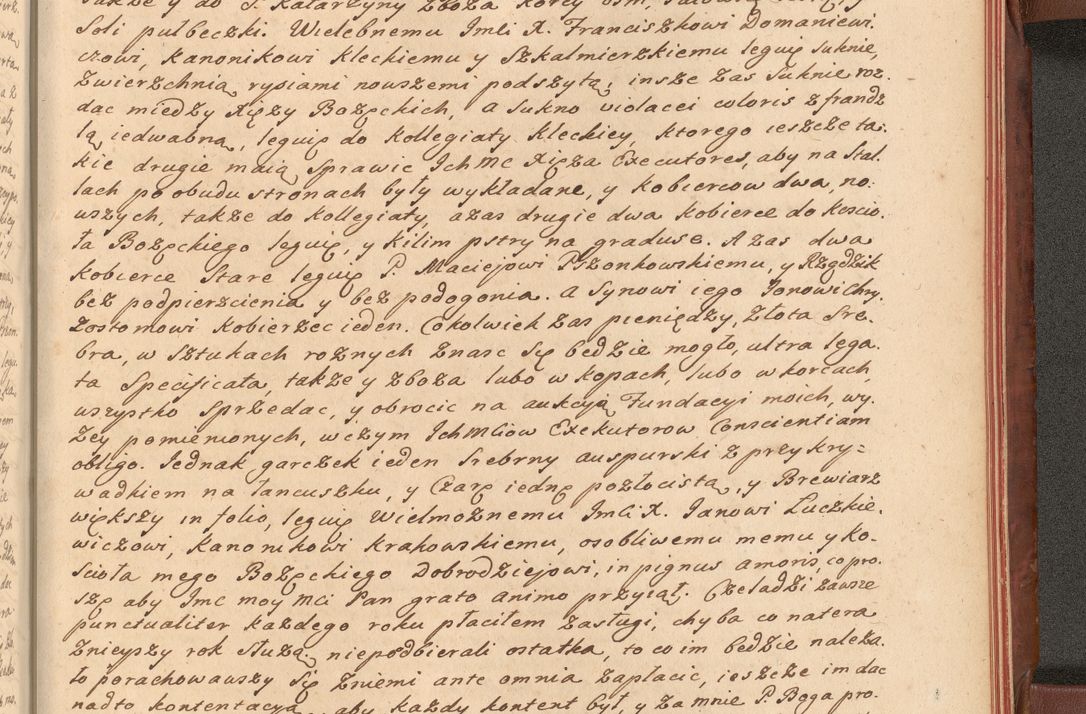 także y do S. Katarzyny zboża korcy ośm,
Soli pułbeczki. Wielebnemu Imći X. Franciszkowi Domaniewi
czowi, Kanonikowi Kleckiemu y Szkalmierzkiemu leguię suknię,
zwierzchnią rysiami nowszemi podszytą, insze zas suknie roz.
dac miedzy Xięży Bożęckich, a sukno violacei coloris z frandz
lą iedwabną, leguię do Kollegiaty Kleckiey, ktorego ieszcze ta:
kie drugie maią sprawic Ich Mc Xięża Executores, aby na stal.
lach po obudu stronach były wykładane, y kobiercow dwa, no:
wszych, także do Kollegiaty, a zas drugie dwa kobierce do Koscio.
ła Bożęckiego leguię, y kilim pstry na graduse. A zas dwa
kobierce stare leguię P. Maciejowi Pszonkowskiemu, y Rzędzik
bez podpierzcienia y bez podogonia. a synowi iego Janowi Chry.
zostomowi kobierzec ieden. Cokolwiek zas pieniędzy, złota sre.
bra, w sztukach rożnych znasc się bedzie mogło, ultra lega.
ta specificata, także y zboża lubo w kopach, lubo w korcach,
wszystko sprzedac, y obrocic na aukcyą Fundacyi moich, wy.
zey pomienionych, w czym Ich Mciow Exekutorow Conscientiam
obligo. Jednak garczek ieden srebrny auspurski z przykry=
wadkiem na łancuszku, y Czarę iednę pozłocistą, y Brewiarz
większy in folio, leguię Wielmożnemu Imći X. Janowi Łuczkie.
wiczowi, Kanonikowi Krakowskiemu, osobliwemu memu y Ko.
scioła mego Bożęckiego Dobrodziejowi, in pignus amoris, co pro.
szę aby Imc moy Mci Pan grato animo przyiął. Czeladzi zawsze
punctualiter każdego roku płaciłem zasługi, chyba co na tera
znieyszy rok służą, niepodbierali ostatka, to co im bedzie należa.
ło porachowawszy się zniemi ante omnia zapłacic, ieszcze im dac
nadto kontentacyą, aby każdy kontent był, y za mnie P. Boga pro.